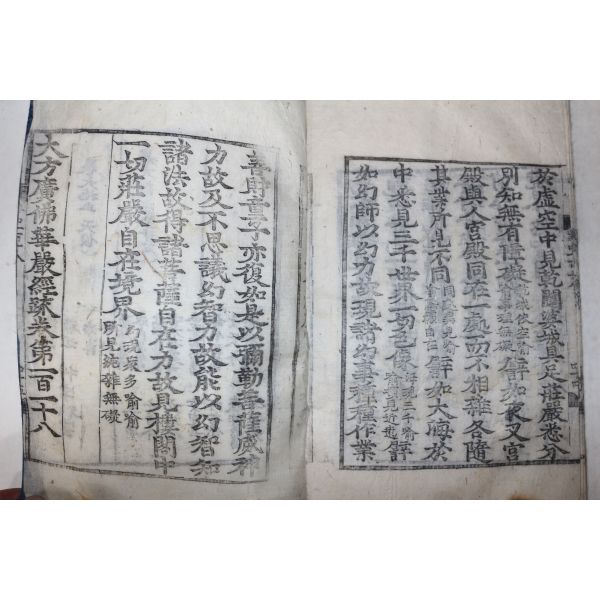 於虛空中見乾闥婆城具足莊嚴悉分
別知無有障礙乾城依空喻喻事理無礙譬如夜叉宮
殿與人宮殿同在一處而不相雜各隨
其業所見不同譬如大海於
中悉見三千世界一切色像海現三千喻喻頓見近遠譬
如幻師以幻力故現諸幻事種種作業
善財童子亦復如是以彌勒菩薩威神
力故及不思議幻智力故能以幻智知
諸法故得諸菩薩自在力故見樓閣中
一切莊嚴自在境界幻現衆多喻喻所見純雜無礙
大方廣佛華嚴經疏卷第一百一十八